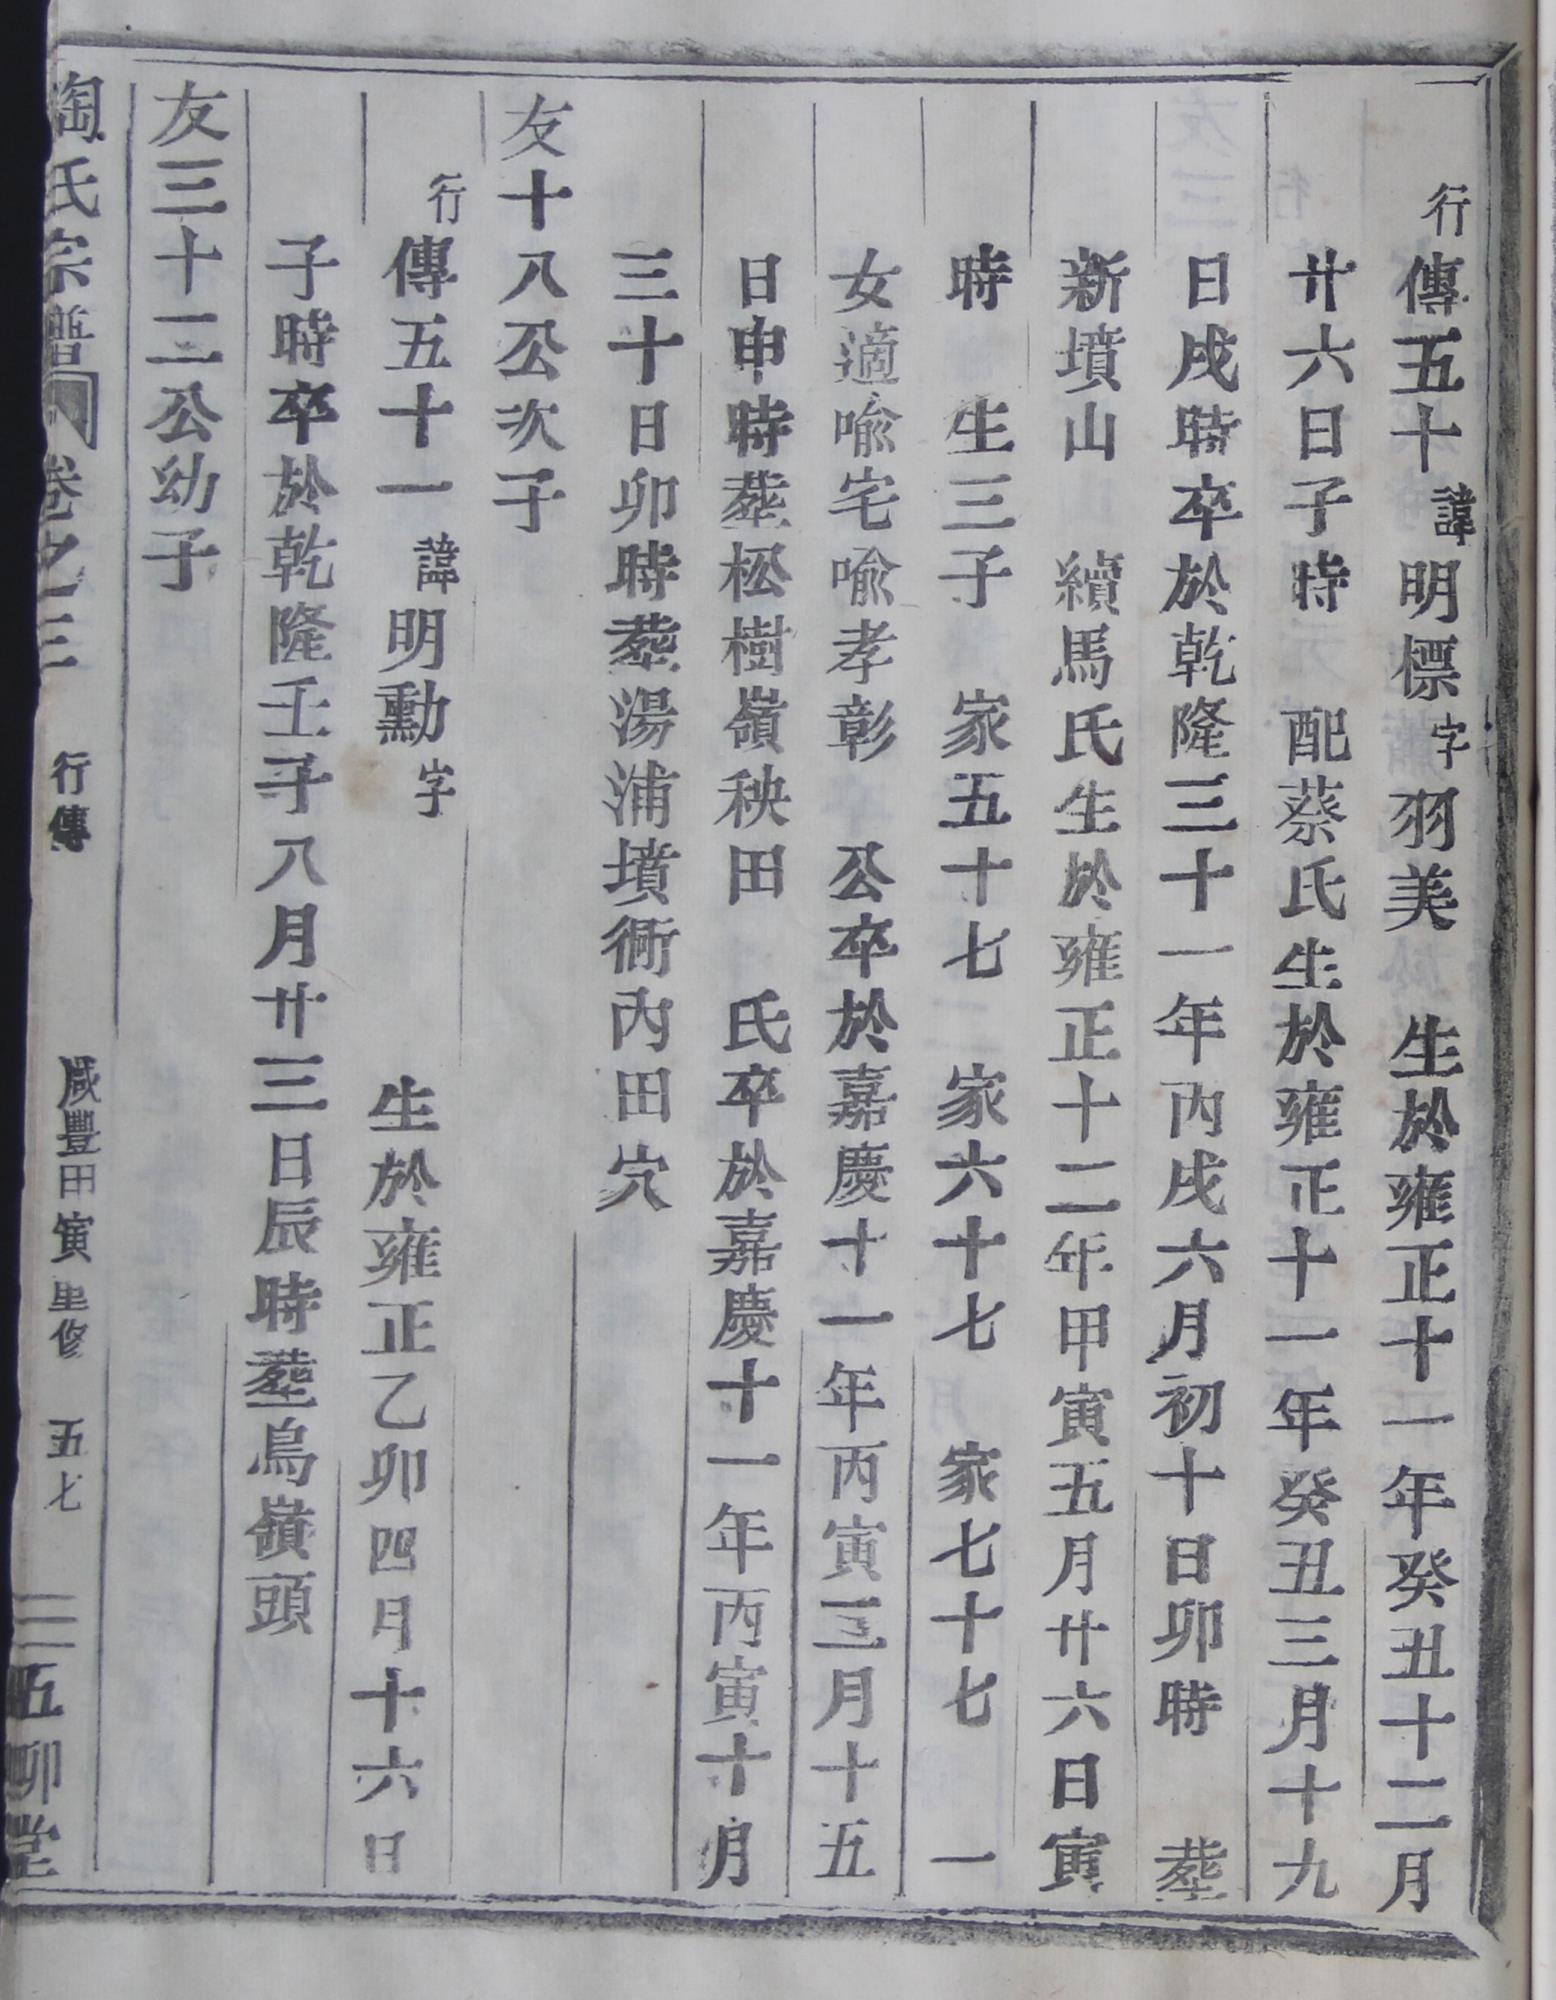 行傳五十諱明標字羽美 生於雍正十一年癸丑十二月
廿六日子時 配蔡氏生於雍正十一年癸丑三月十九
日戌時卒於乾隆三十一年丙戌六月初十日卯時 塟
新墳山 續馬氏生於雍正十二年甲寅五月廿六日寅
時 生三子 家五十七 家六十七 家七十七 一
女適喩宅喩孝彰 公卒於嘉慶十一年丙寅三月十五
日申時塟松樹嶺秧田 氏卒於嘉慶十一年丙寅十月
三十日卯時塟湯浦墳衕內田穴
友十八公次子
行傳五十一諱明勳字 生於雍正乙卯四月十六日
子時卒於乾隆壬子八月廿三日辰時塟烏嶺頭
友三十二公幼子
陶氏宗譜 卷之三 行傳 咸豐甲寅重修 五七 五柳堂